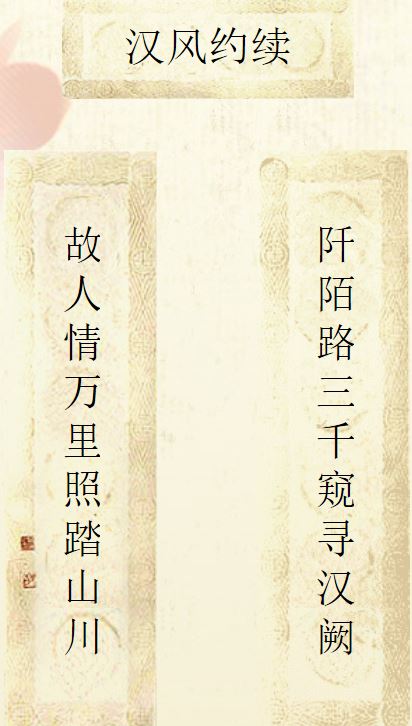 汉风约续
阡陌路三千窥寻汉阙
故人情万里照踏山川